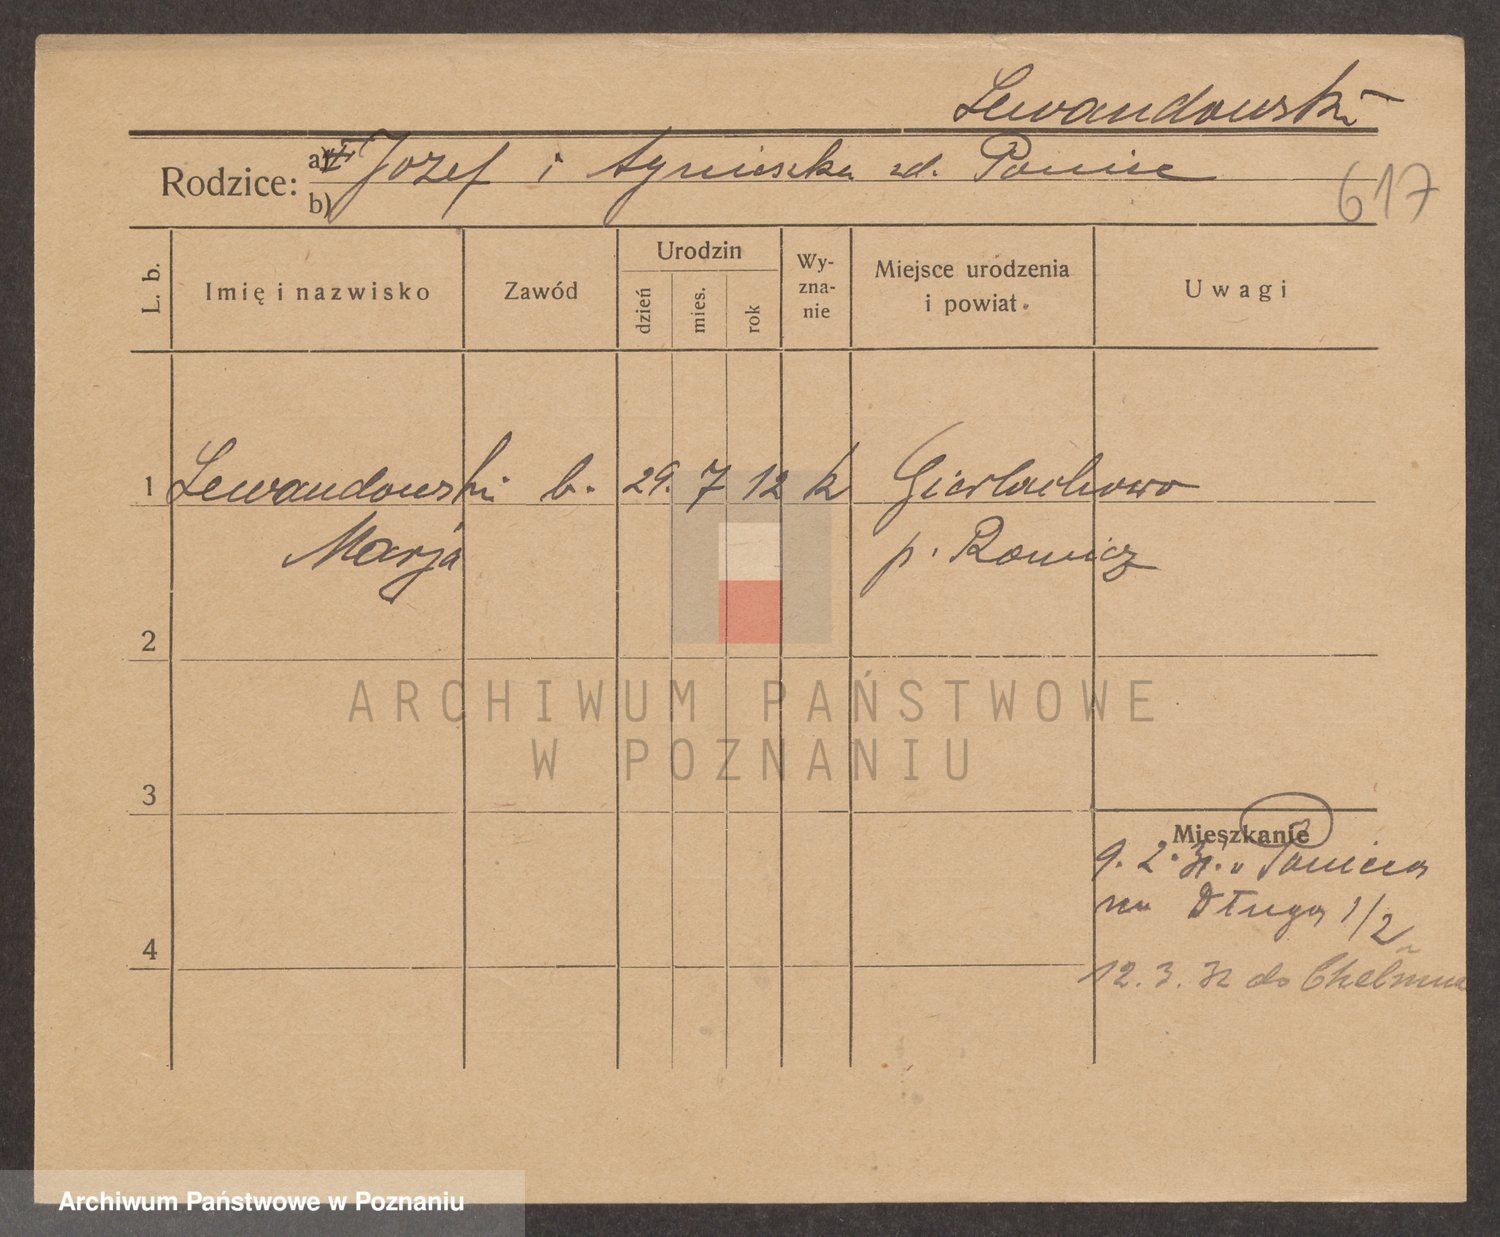 Lewandowski
Rodzice: a) Józef i Agnieszka zd. Poniec
b)
617
L. b.
Imię i nazwisko
Zawód
Urodzin
dzień
mies.
rok
Wy-
zna-
nie
Miejsce urodzenia
i powiat.
Uwagi
1 Lewandowski b. 29. 7 12 k Gierłachowo
Marja p. Rawicz
2
3
4
Mieszkanie
9. 2. 31. v Ponica
na Długa 1/2
12. 3. 32 do Chełmna
ARCHIWUM PAŃSTWOWE
W POZNANIU
Archiwum Państwowe w Poznaniu